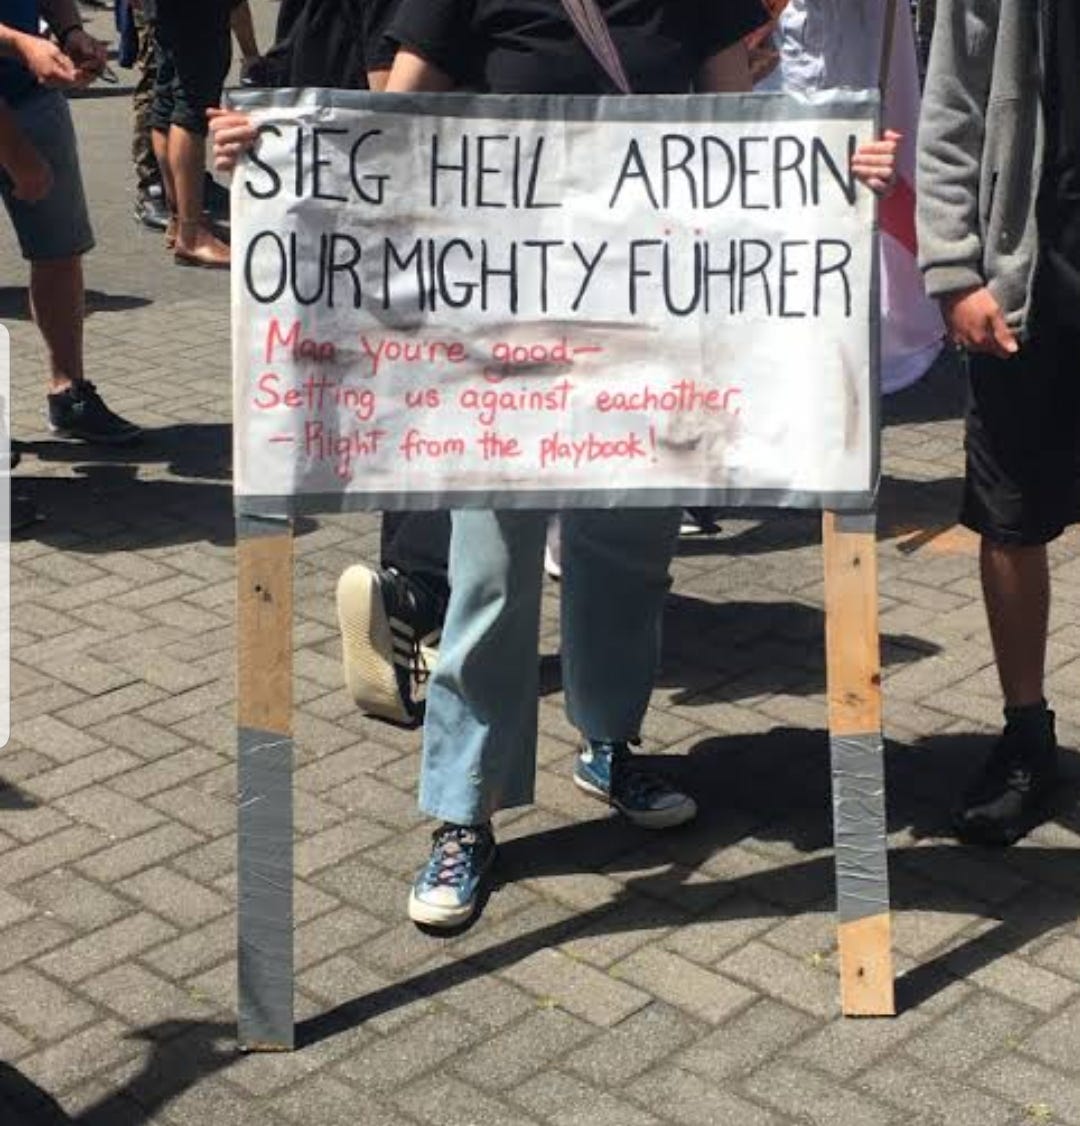 SIEG HEIL ARDERN
OUR MIGHTY FÜHRER
Man you're good—
Setting us against eachother,
- Right from the playbook!